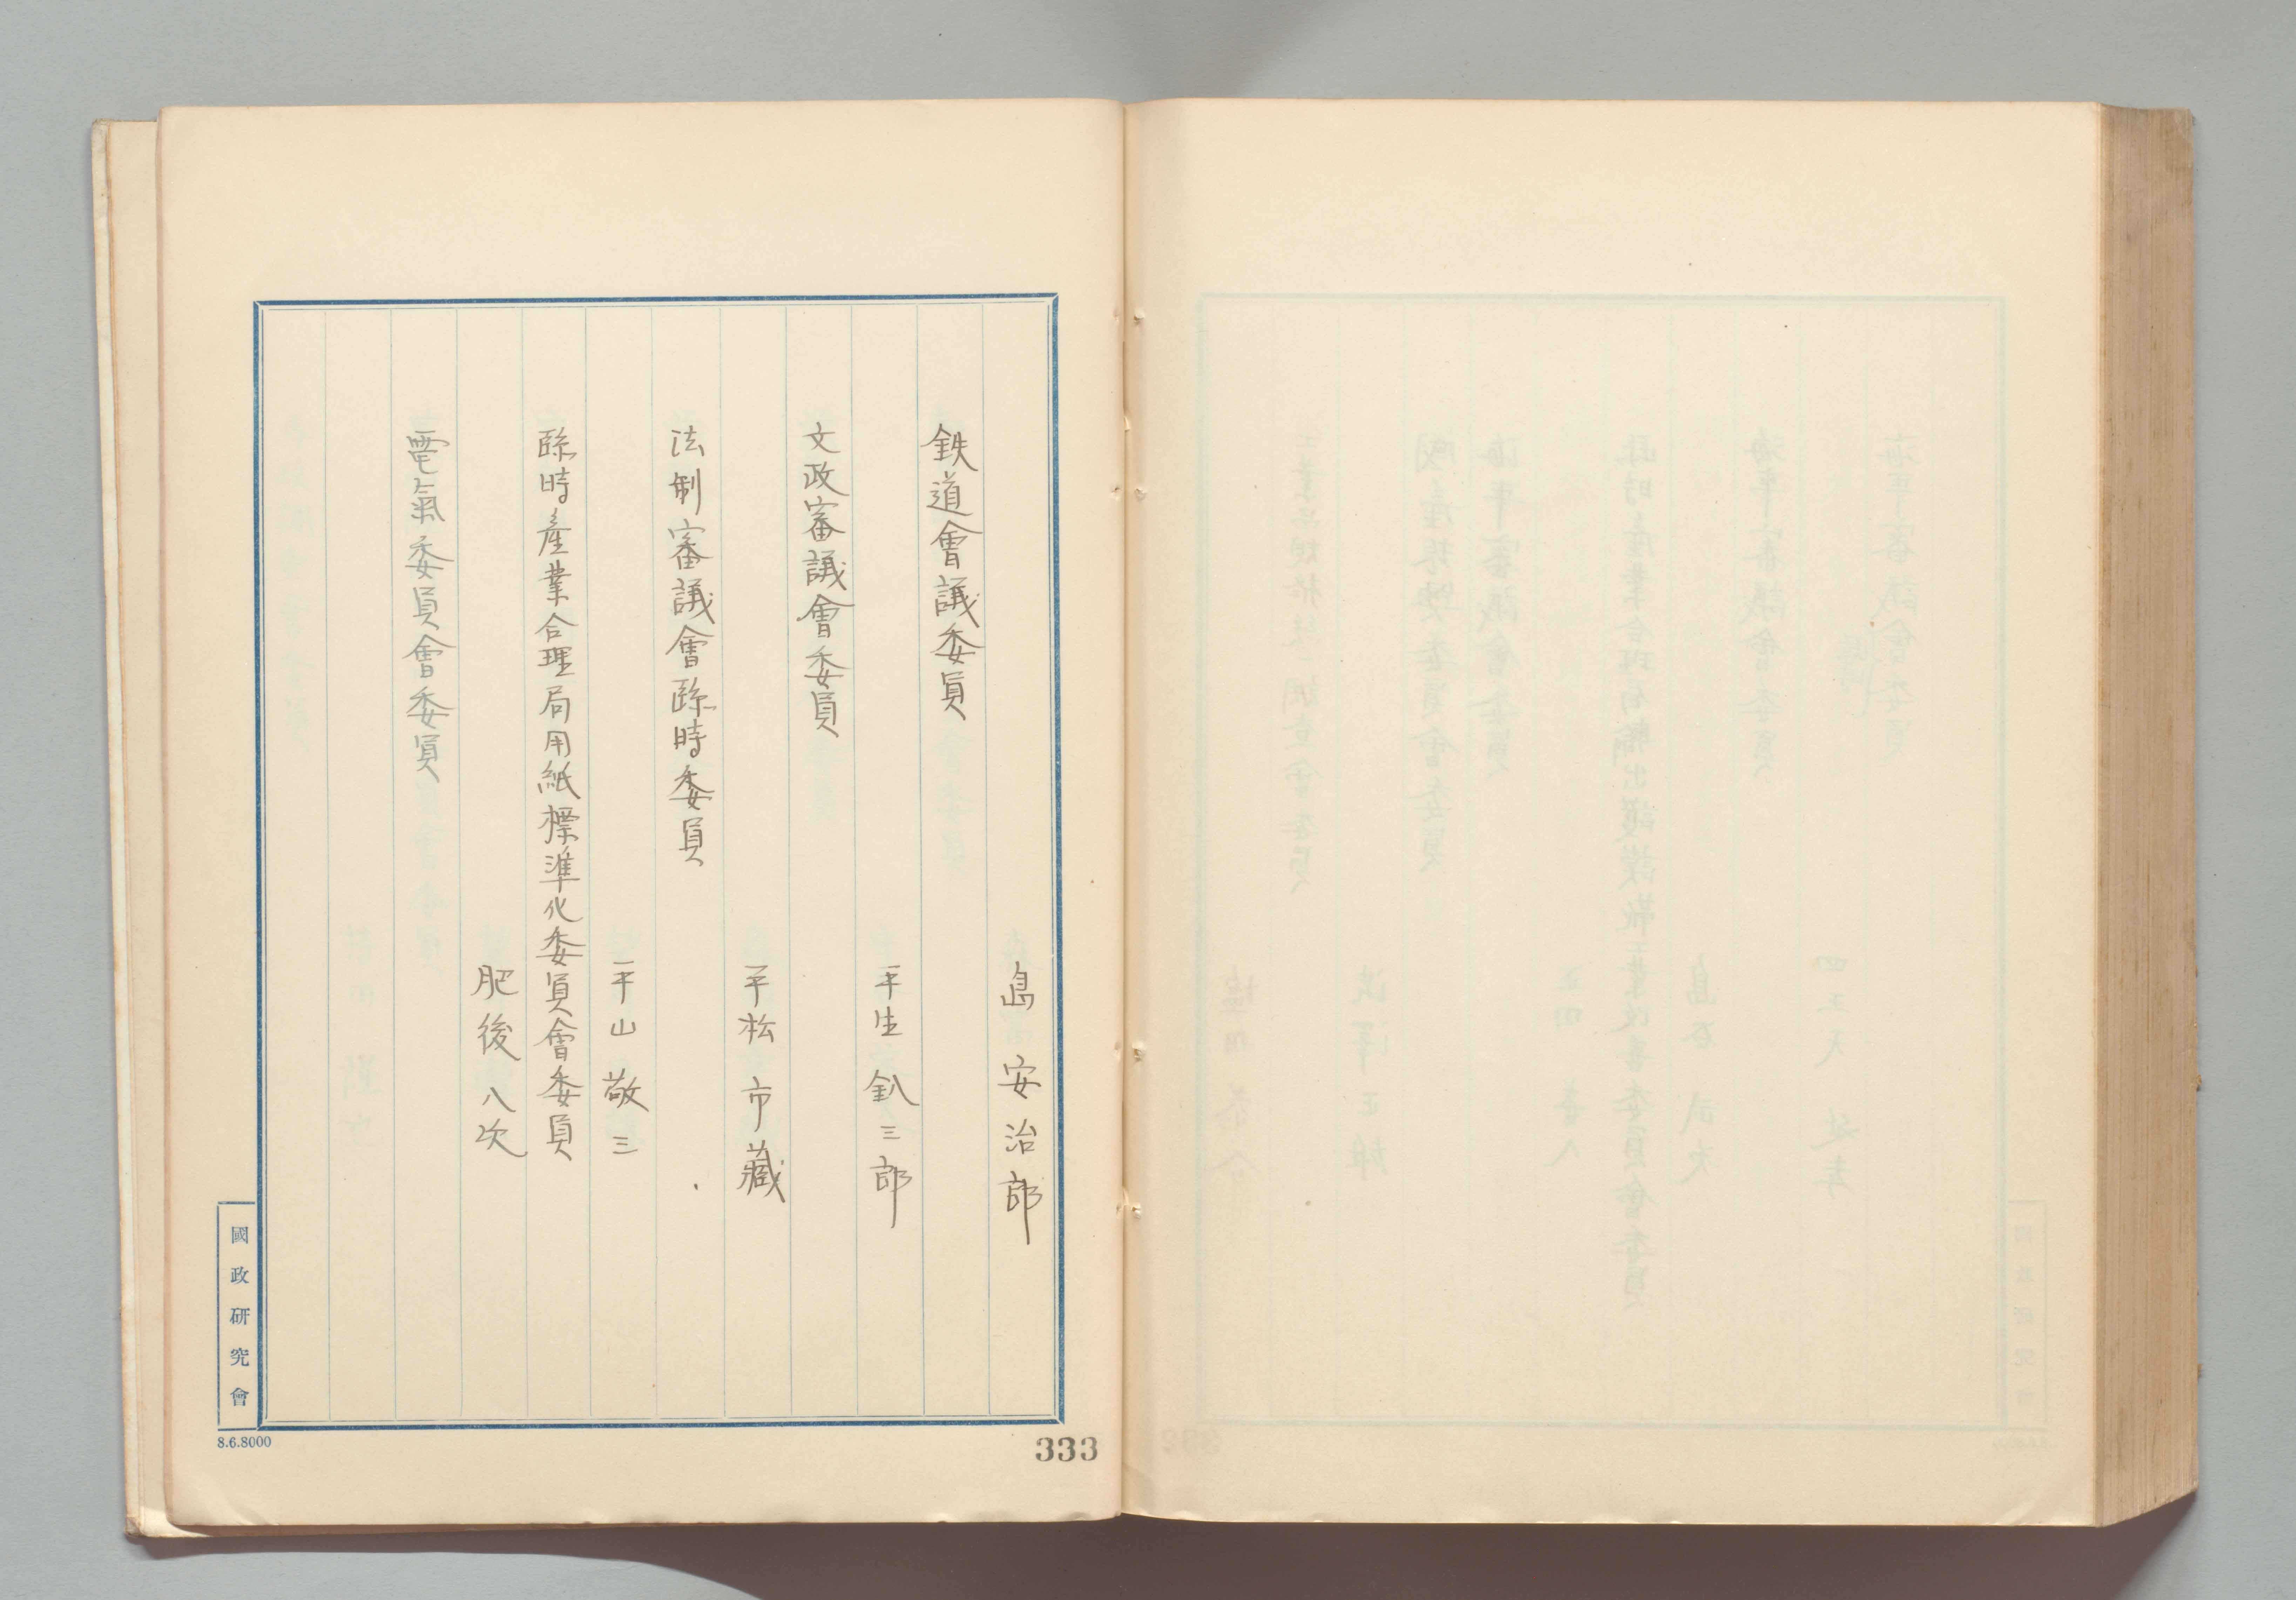 島安治郎
鉄道會議委員
平生釟三郎
文政審議會委員
平松市藏
法制審議會臨時委員
平山敬三
臨時産業合理局用紙標準化委員會委員
肥後八次
電氣委員會委員
國政研究會
8.6.8000
333